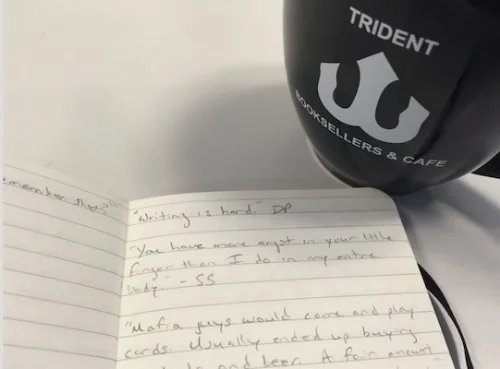 TRIDENT
BOOKSELLERS & CAFE
"Writing is hard." DP
"You have more angst in your little
finger than I do in my entire
body" - SS
"Mafia guys would come and play
cards. Usually ended up buying
and beer. A fair amount